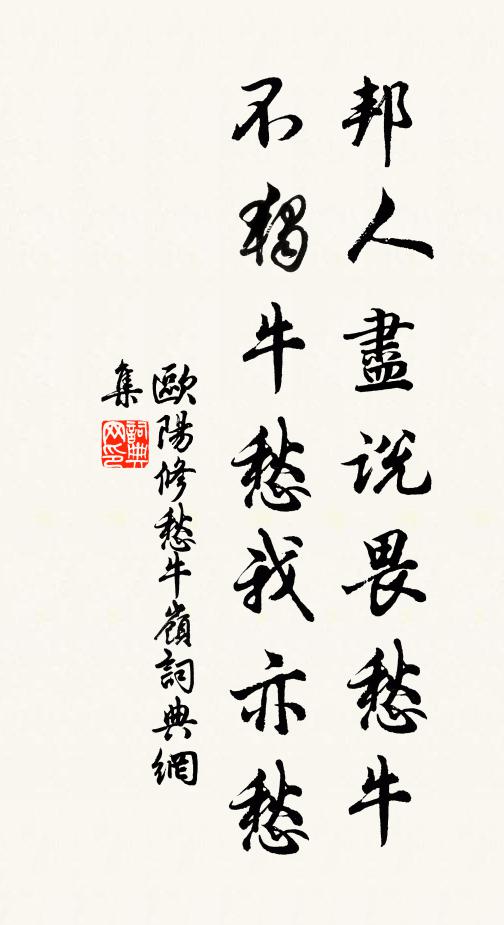 邦人盡説畏愁牛
不獨牛愁我亦愁
歐陽修愁牛嶺詞典網
集
詞典网印